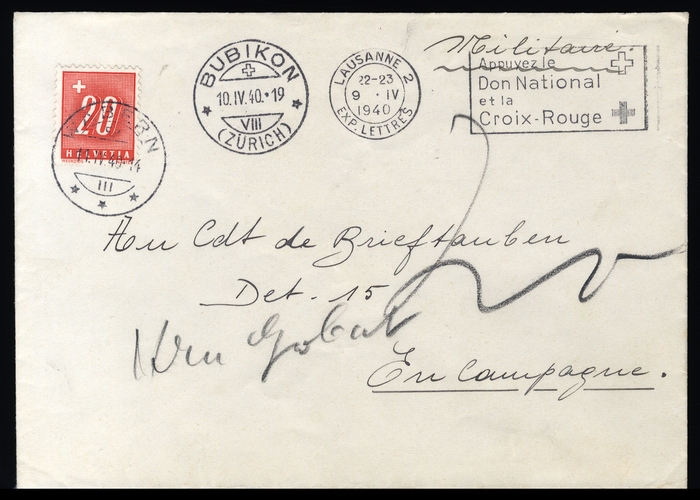 Militaire.
BUBIKON
10.IV.40.-19
VIII
(ZÜRICH)
LAUSANNE 2
22-23
9 · IV
1940
EXP. LETTRES
Appuyez le
Don National
et la
Croix-Rouge
20
HELVETIA
BERN
IV 40-14
III
An Cdt de Brieftauben
Det. 15
Hrn Gobat
En Campagne.